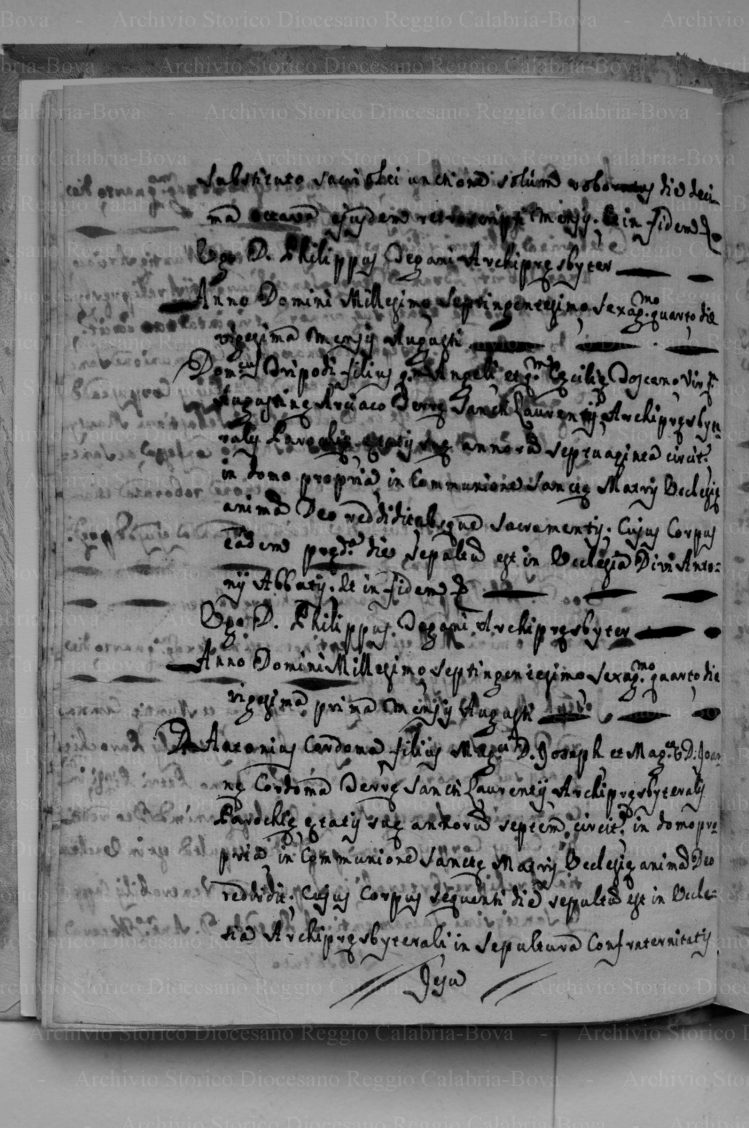 Archivio Storico Diocesano Reggio Calabria-Bova
sacri olei unctione solum roboratus die deci-
ma octava ejusdem mensis. Et in fidem
Ego D. Philippus Degani Archipręsbyter
Anno Domini Millesimo Septingentesimo Sexag.mo quarto die
vigesima Mensis Augusti
Dom.cus Tripodi filius q.m Angeli et q.m Cęcilię Toscano Vir
Augustinę Terrę Sancti Laurentij Archipręsbyte-
ralis annorũ septuaginta circit.r
in domo propria in Communione Sanctę Matris Ecclesię
animã Deo reddidit absque Sacramentis. Cujus Corpus
eadem pręd.a die sepultũ est in Ecclesia Divi Anto-
nij Abbatis. Et in fidem
Ego D. Philippus Degani Archipręsbyter
Anno Domini Millesimo Septingentesimo Sexag.mo quarto die
vigesima prima Mensis Augusti
D. Antonius Cordoma filius Mag.ci D. Joseph et Mag.cę D. Joan-
nę Cordoma Terrę Sancti Laurentij Archipręsbyteralis
Parochię ętatis suę annorũ septem circit.r in domo pro-
pria in Communione Sanctę Matris Ecclesię animã Deo
reddidit. Cujus Corpus sequenti die sepultũ est in Eccle-
sia Archipręsbyterali in sepultura Confraternitatis
Jesu